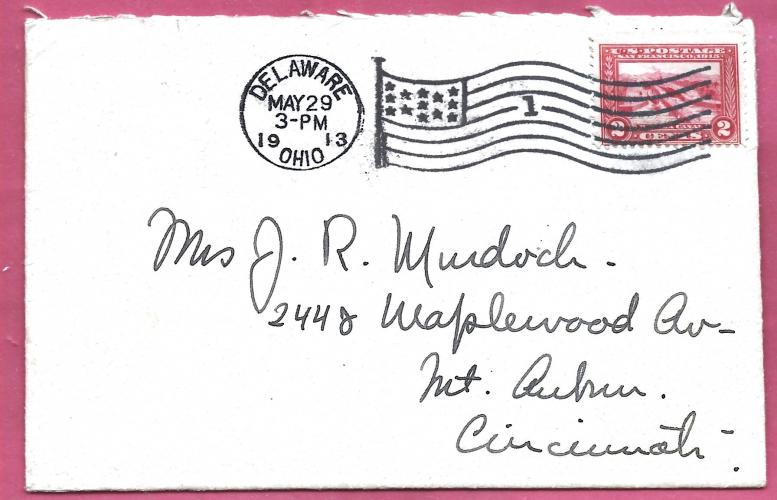 DELAWARE
MAY 29
3-PM
19 13
OHIO
1
U.S. POSTAGE
SAN FRANCISCO, 1915
2 CENTS 2
Mrs J. R. Murdoch.
2448 Maplewood Av-
Mt. Auburn.
Cincinnati-.